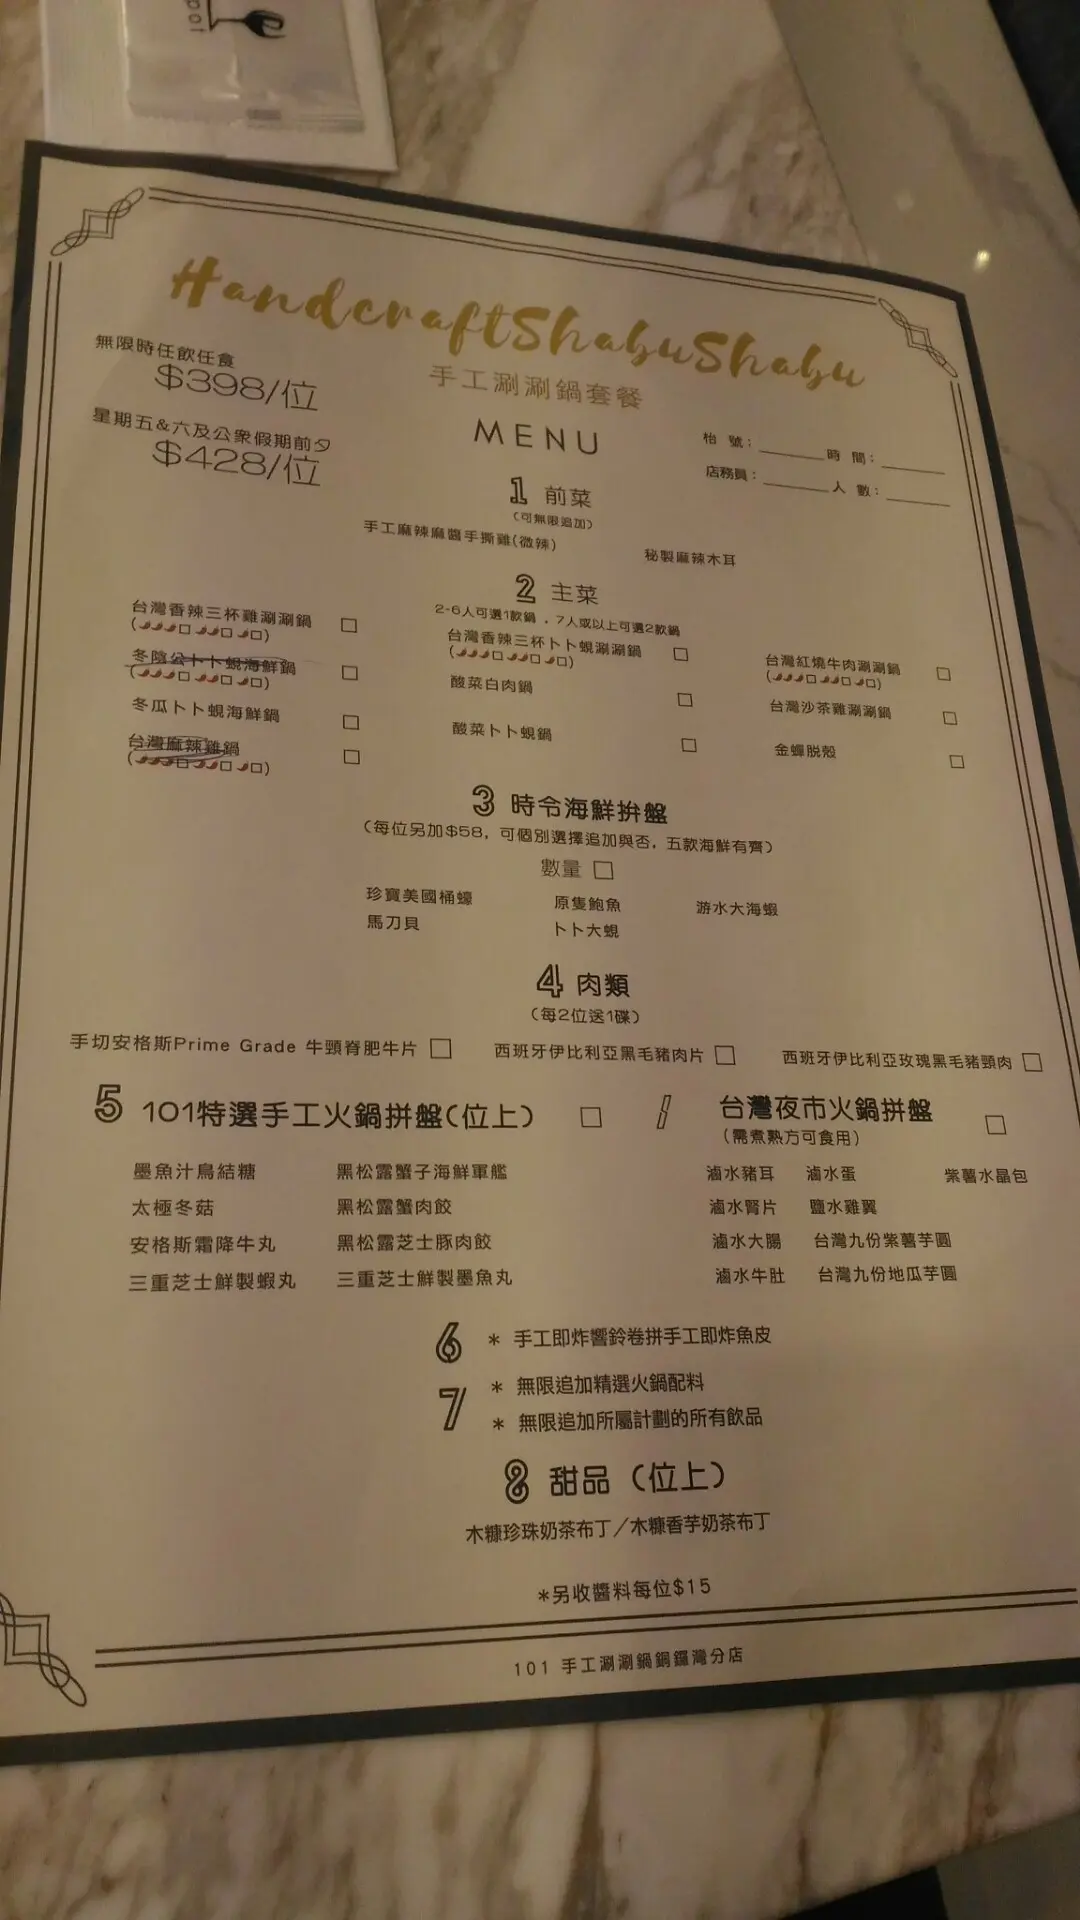 pot
HandcraftShabuShabu
手工涮涮鍋套餐
MENU
無限時任飲任食
$398/位
星期五&六及公眾假期前夕
$428/位
枱 號：______ 時 間：______
店務員：______ 人 數：______
1 前菜
(可無限追加)
手工麻辣麻醬手撕雞(微辣) 秘製麻辣木耳
2 主菜
2-6人可選1款鍋，7人或以上可選2款鍋
台灣香辣三杯雞涮涮鍋 □ 台灣香辣三杯卜卜蜆涮涮鍋 □ 台灣紅燒牛肉涮涮鍋 □
冬陰公卜卜蜆海鮮鍋 □ 酸菜白肉鍋 □ 台灣沙茶雞涮涮鍋 □
冬瓜卜卜蜆海鮮鍋 □ 酸菜卜卜蜆鍋 □ 金蟬脱殼 □
台灣麻辣雞鍋 □
3 時令海鮮拚盤
(每位另加$58，可個別選擇追加與否，五款海鮮有齊)
數量 □
珍寶美國桶蠔 原隻鮑魚 游水大海蝦
馬刀貝 卜卜大蜆
4 肉類
(每2位送1碟)
手切安格斯Prime Grade 牛頸脊肥牛片 □ 西班牙伊比利亞黑毛豬肉片 □ 西班牙伊比利亞玫瑰黑毛豬頸肉 □
5 101特選手工火鍋拼盤(位上) □ / 台灣夜市火鍋拼盤 □
(需煮熟方可食用)
墨魚汁鳥結糖 黑松露蟹子海鮮軍艦 滷水豬耳 滷水蛋 紫薯水晶包
太極冬菇 黑松露蟹肉餃 滷水腎片 鹽水雞翼
安格斯霜降牛丸 黑松露芝士豚肉餃 滷水大腸 台灣九份紫薯芋圓
三重芝士鮮製蝦丸 三重芝士鮮製墨魚丸 滷水牛肚 台灣九份地瓜芋圓
6 * 手工即炸響鈴卷拼手工即炸魚皮
7 * 無限追加精選火鍋配料
* 無限追加所屬計劃的所有飲品
8 甜品 (位上)
木糠珍珠奶茶布丁／木糠香芋奶茶布丁
*另收醬料每位$15
101 手工涮涮鍋銅鑼灣分店